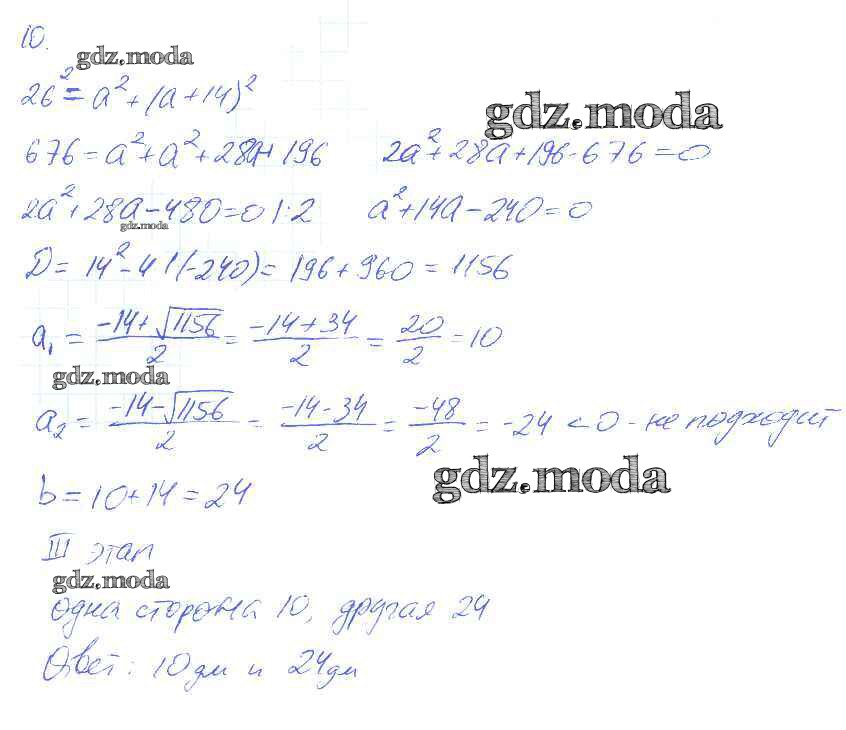 10.
gdz.moda
26² = a² + (a + 14)²
gdz.moda
676 = a² + a² + 28a + 196 2a² + 28a + 196 - 676 = 0
2a² + 28a - 480 = 0 |:2 a² + 14a - 240 = 0
gdz.moda
D = 14² - 4·1·(-240) = 196 + 960 = 1156
a₁ = (-14 + √1156)/2 = (-14 + 34)/2 = 20/2 = 10
gdz.moda
a₂ = (-14 - √1156)/2 = (-14 - 34)/2 = -48/2 = -24 < 0 - не подходит
gdz.moda
b = 10 + 14 = 24
III этап
gdz.moda
одна сторона 10, другая 24
Ответ: 10 дм и 24 дм